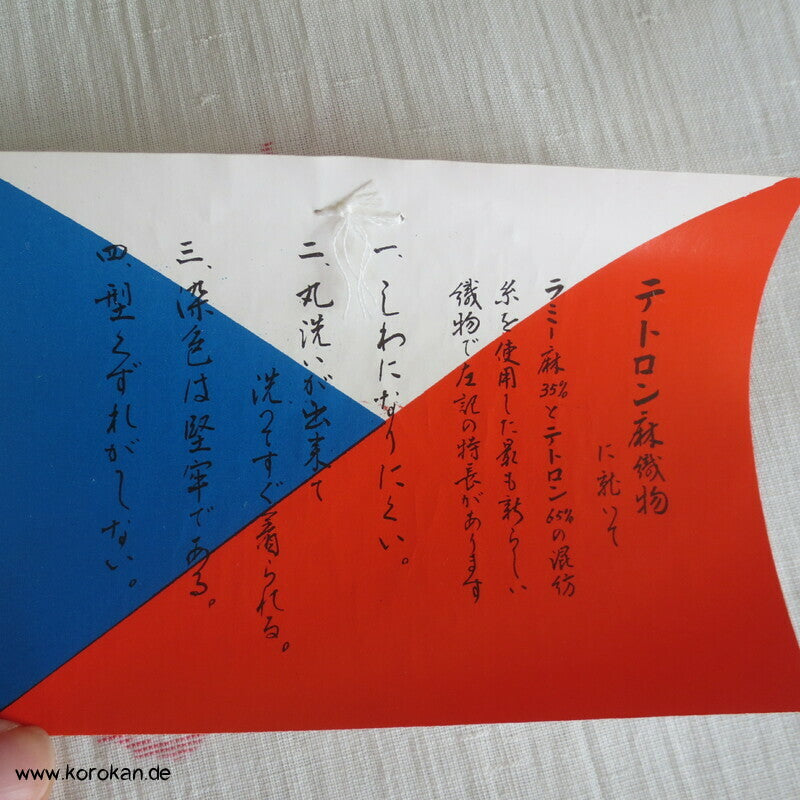 テトロン麻織物
に就いて
ラミー麻35%とテトロン65%の混紡
糸を使用した最も新らしい
織物で左記の特長があります
一、しわになりにくい。
二、丸洗いが出来て
洗つてすぐ着られる。
三、染色は堅牢である。
四、型くずれがしない。
www.korokan.de